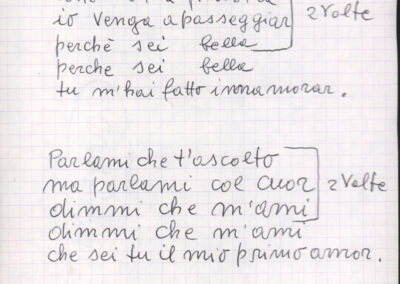 io venga a passeggiar
perchè sei bella
2 volte
perche sei bella
tu m'hai fatto innamorar.
Parlami che t'ascolto
ma parlami col cuor
dimmi che m'ami
2 volte
dimmi che m'ami
che sei tu il mio primo amor.